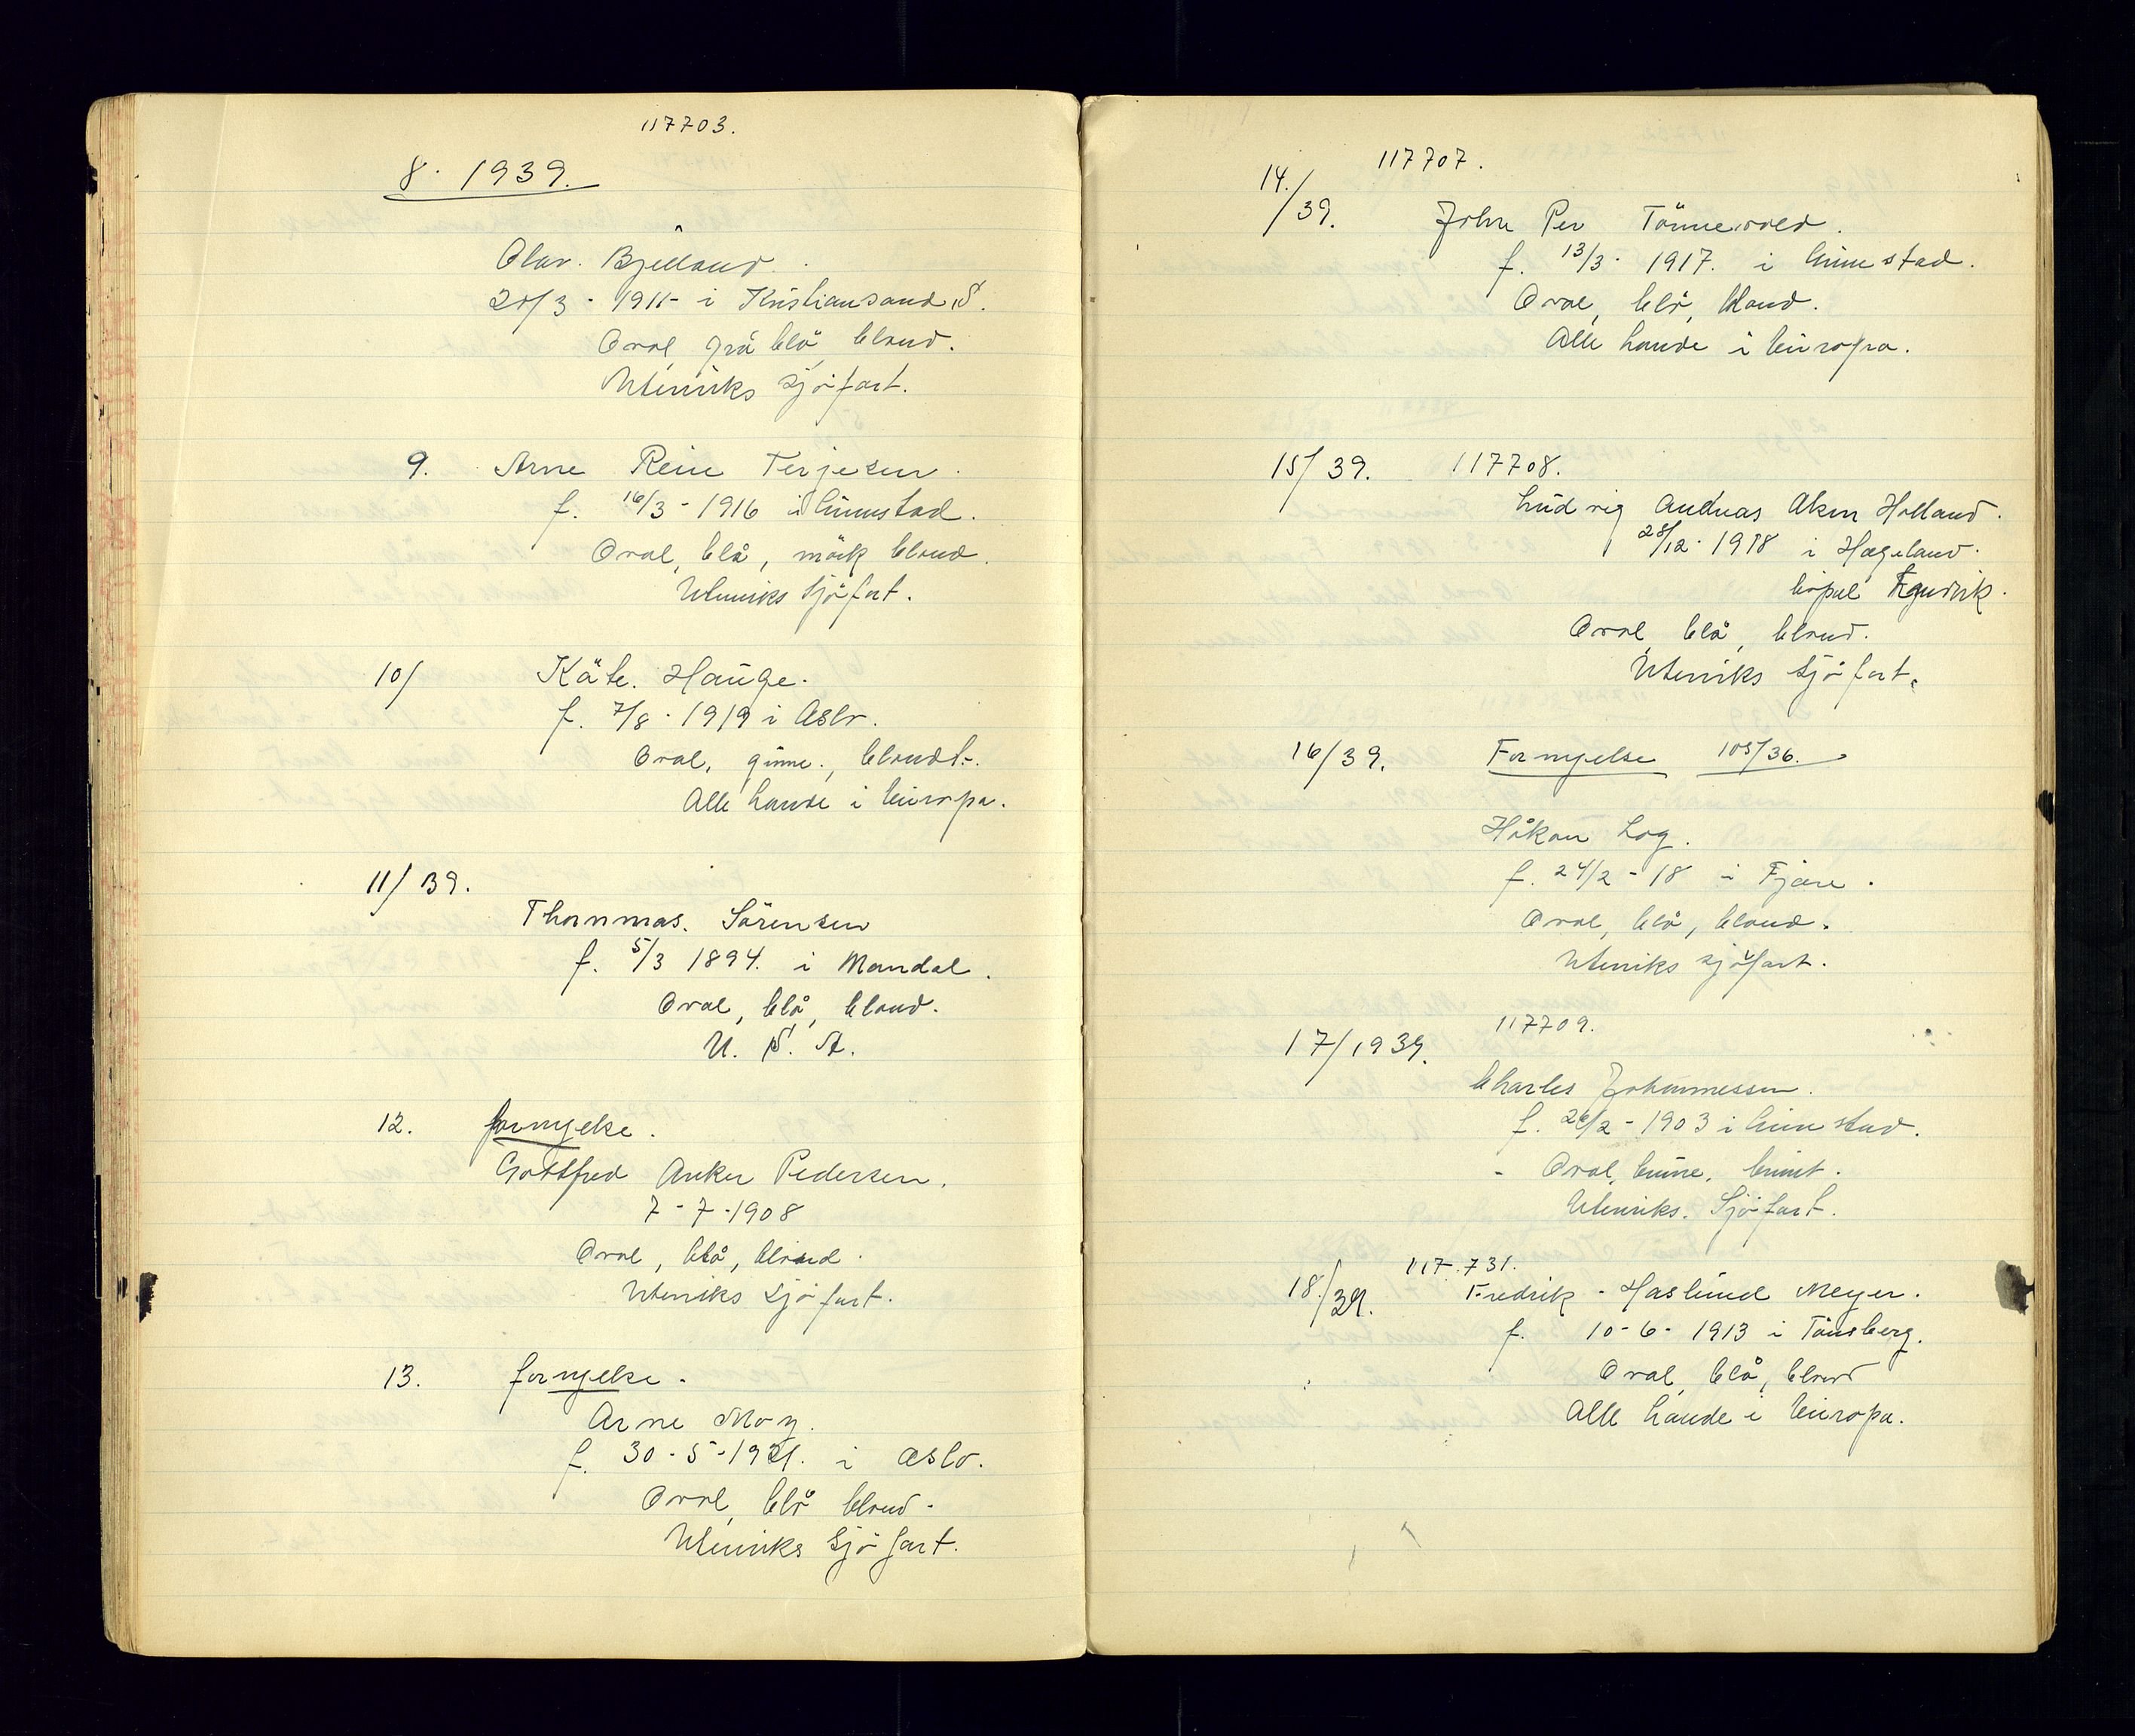 117703.
8. 1939.
Olav. Bjelland.
20/3 - 1915 i Kristiansand S.
Oval, grå blå, blond.
Utenriks sjöfart.
9. Arne Rein Terjesen.
f. 16/3 - 1916 i Grimstad.
Oval, blå, mörk blond.
Utenriks sjöfart.
10/ Käte. Hauge.
f. 7/8 - 1919 i Oslo.
Oval, grönne., blondt.
Alle lande i Europa.
11/39.
Thommas. Sörensen
f. 5/3 1894. i Mandal.
Oval, blå, blond.
U. S. A.
12. fornyelse.
Gottfred Anker Pedersen.
7-7-1908
Oval, blå, blond.
Utenriks sjöfart.
13. fornyelse.
Arne Moy.
f. 30-5-1921. i Oslo.
Oval, blå blond.
Utenriks sjöfart.
117707.
14./39.
John Per Tönnevold.
f. 13/3 - 1917. i Grimstad.
Oval, blå, blond.
Alle lande i Europa.
15/39. 117708.
Ludvig Andreas Holland.
28/12 - 1918 i Hægeland.
Oval, blå, blond.
Utenriks sjöfart.
16/39. Fornyelse 105/36.
Håkon Log.
f. 24/2 - 18 i Fjære.
Oval, blå, blond.
Utenriks sjöfart.
117709.
17/1939.
Charles Johannessen.
f. 26/2 - 1903 i Grimstad.
- Oval, brune, brunt.
Utenriks. Sjöfart.
117.731.
18./39. Fredrik - Haslund Meyer.
f. 10-6-1913 i Tönsberg.
Oval, blå, blond
Alle lande i Europa.